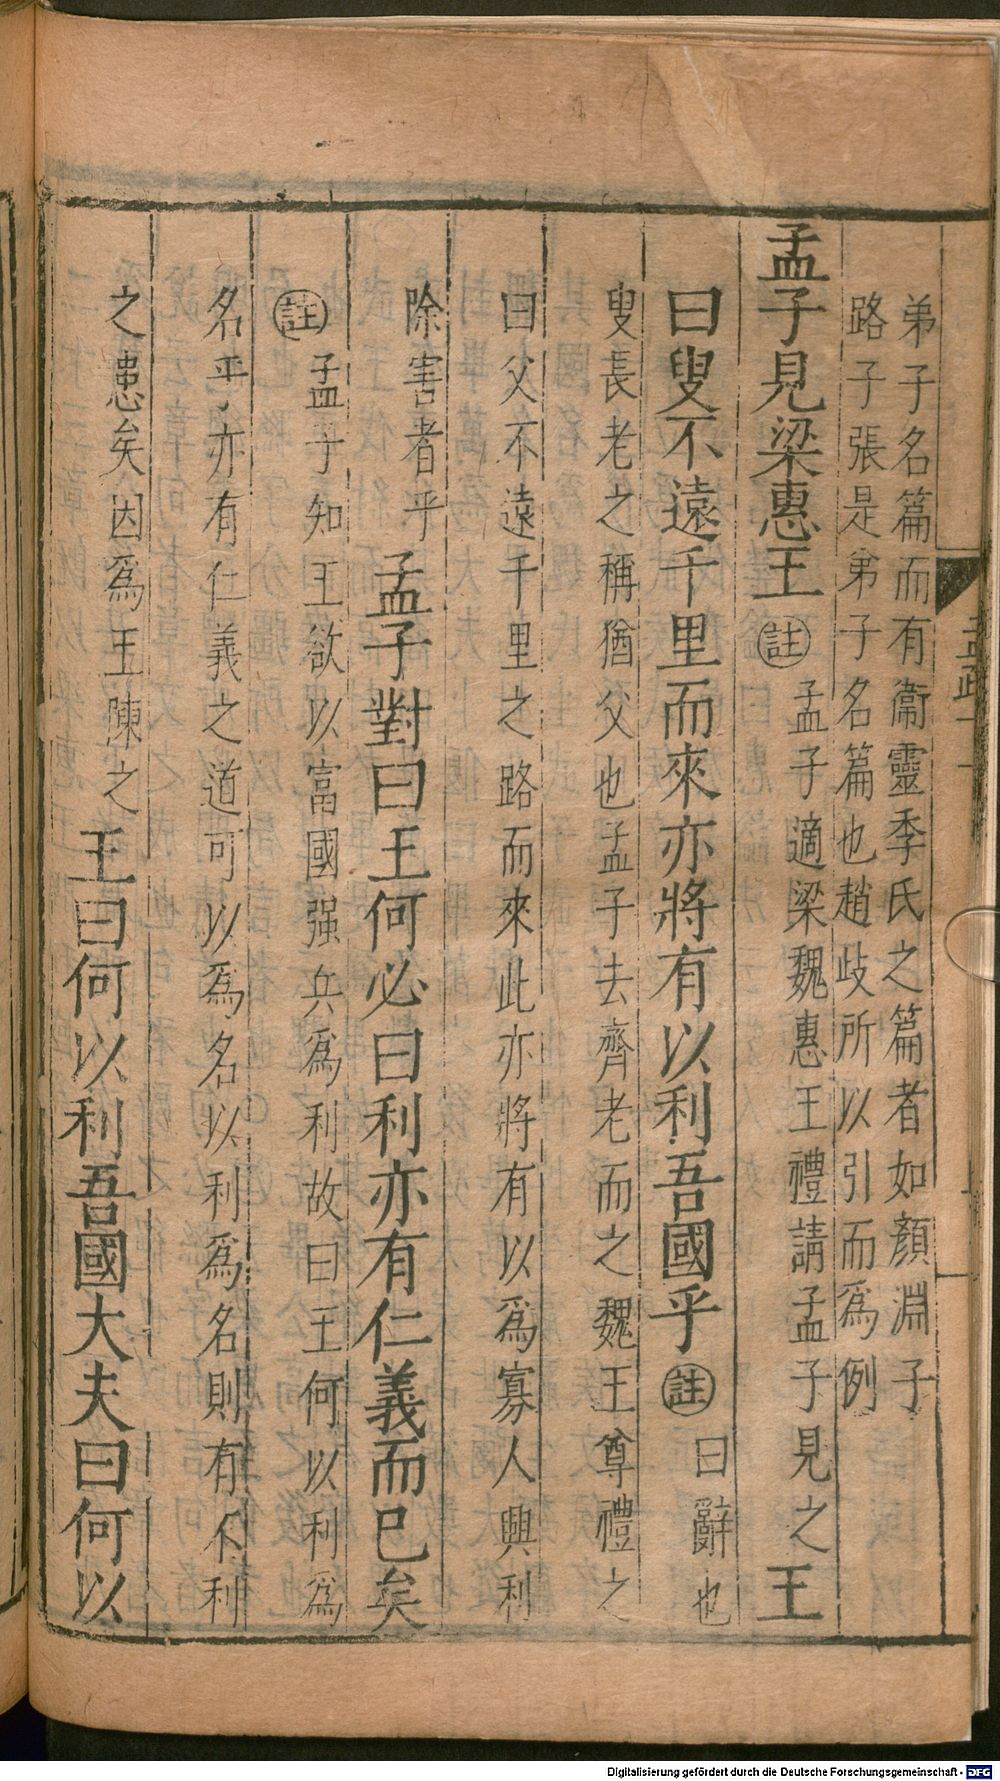 弟子名篇而有衞靈季氏之篇者如顏淵子
路子張是弟子名篇也趙歧所以引而爲例
孟子見梁惠王註孟子適梁魏惠王禮請孟子見之王
曰叟不遠千里而來亦將有以利吾國乎註曰辭也
叟長老之稱猶父也孟子去齊老而之魏王尊禮之
曰父不遠千里之路而來此亦將有以爲寡人興利
除害者乎孟子對曰王何必曰利亦有仁義而已矣
註孟子知王欲以富國强兵爲利故曰王何以利爲
名乎亦有仁義之道可以爲名以利爲名則有不利
之患矣因爲王陳之王曰何以利吾國大夫曰何以
Digitalisierung gefördert durch die Deutsche Forschungsgemeinschaft - DFG